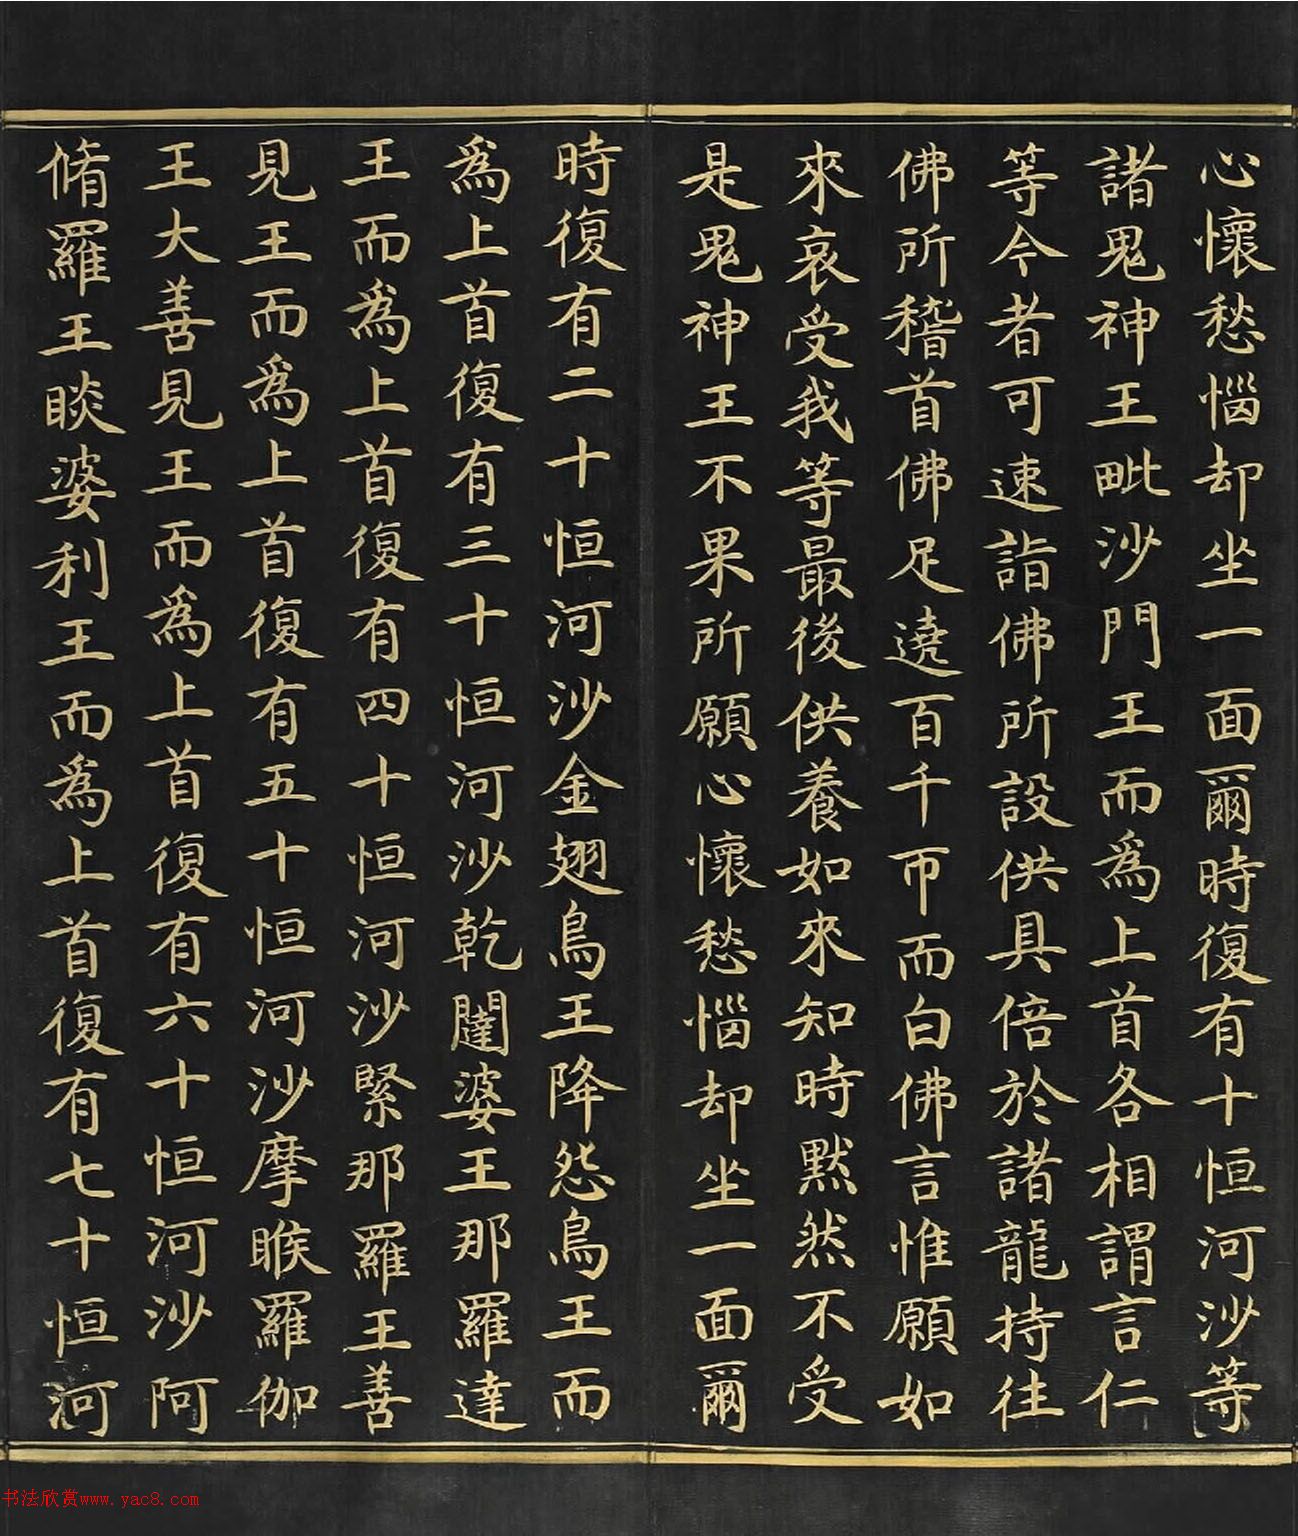 心懷愁惱却坐一面爾時復有十恒河沙等
諸鬼神王毗沙門王而為上首各相謂言仁
等今者可速詣佛所設供具倍於諸龍持往
佛所稽首佛足遶百千帀而白佛言惟願如
來哀受我等最後供養如來知時默然不受
是鬼神王不果所願心懷愁惱却坐一面爾
時復有二十恒河沙金翅鳥王降怨鳥王而
為上首復有三十恒河沙乾闥婆王那羅達
王而為上首復有四十恒河沙緊那羅王善
見王而為上首復有五十恒河沙摩睺羅伽
王大善見王而為上首復有六十恒河沙阿
脩羅王睒婆利王而為上首復有七十恒河
书法欣赏www.yac8.com